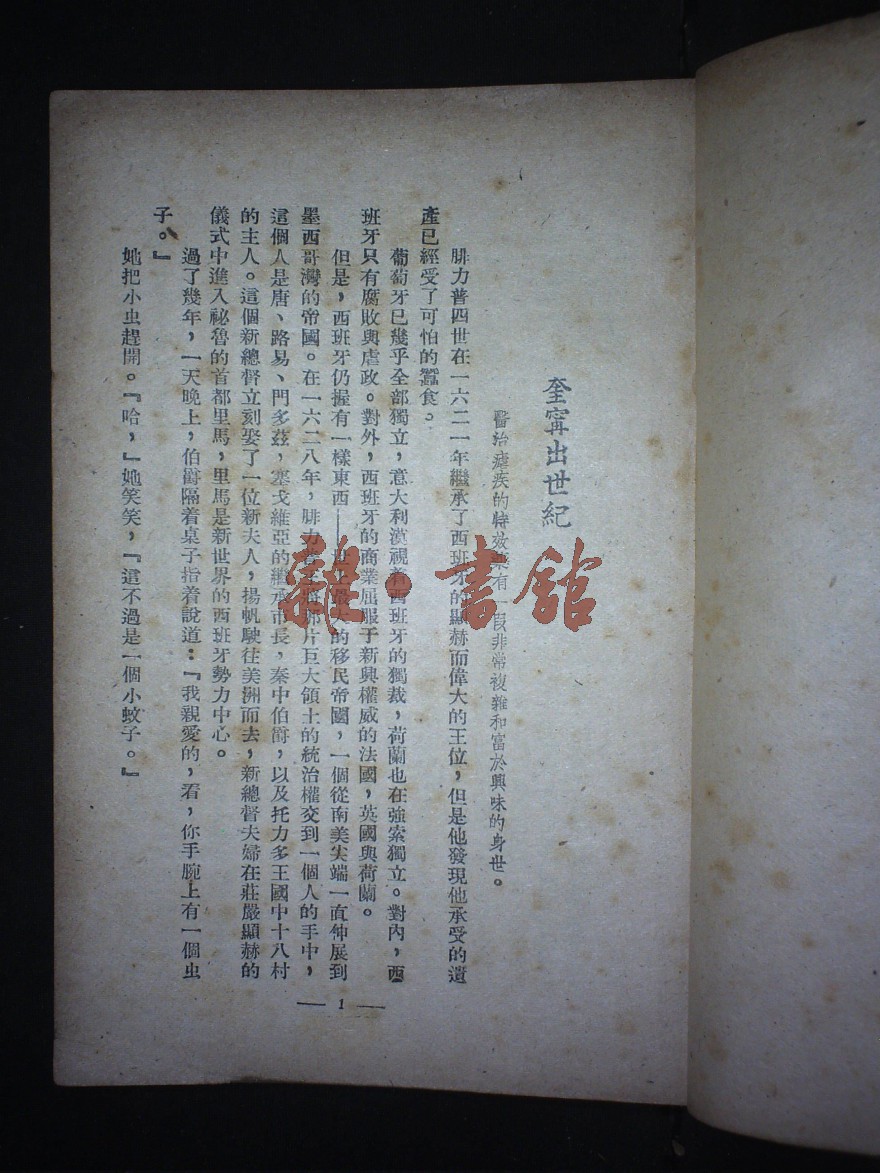 奎寗出世紀
醫治瘧疾的特效藥有一段非常複雜和富於興味的身世。
腓力普四世在一六二一年繼承了西班牙的顯赫而偉大的王位，但是他發現他承受的遺
產已經受了可怕的蠶食。
葡萄牙已幾乎全部獨立，意大利漠視着西班牙的獨裁，荷蘭也在強索獨立。對內，西
班牙只有腐敗與虐政。對外，西班牙的商業屈服于新興權威的法國，英國與荷蘭。
但是，西班牙仍握有一樣東西——世上最大的移民帝國，一個從南美尖端一直伸展到
墨西哥灣的帝國。在一六二八年，腓力普將那片巨大領土的統治權交到一個人的手中，
這個人是唐、路易、門多茲，塞戈維亞的繼承市長，秦中伯爵，以及托力多王國中十八村
的主人。這個新總督立刻娶了一位新夫人，揚帆駛往美洲而去，新總督夫婦在莊嚴顯赫的
儀式中進入祕魯的首都里馬，里馬是新世界的西班牙勢力中心。
過了幾年，一天晚上，伯爵隔着桌子指着說道：『我親愛的，看，你手腕上有一個虫
子。』
她把小虫趕開。『哈，』她笑笑，『這不過是一個小蚊子。』
— 1 —
雜·書館